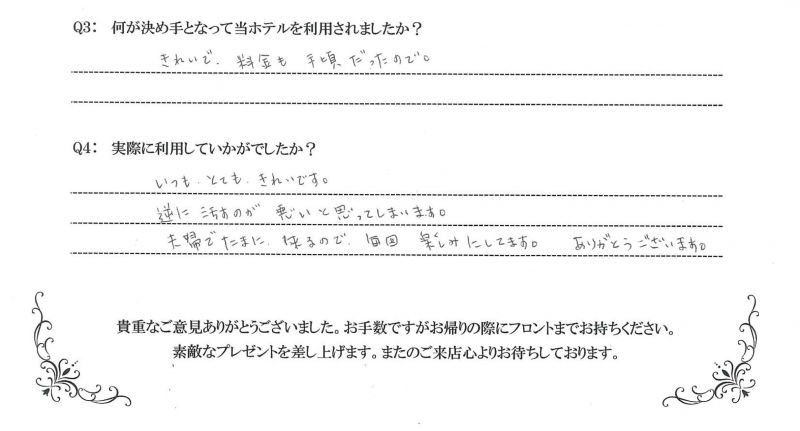 Q3: 何が決め手となって当ホテルを利用されましたか?
きれいで、料金も 手頃だったので。
Q4: 実際に利用していかがでしたか?
いつも、とても、きれいです。
逆に 汚すのが 悪いと思ってしまいます。
夫婦でたまに、来るので、毎回 楽しみにしてます。 ありがとうございます。
貴重なご意見ありがとうございました。お手数ですがお帰りの際にフロントまでお持ちください。
素敵なプレゼントを差し上げます。またのご来店心よりお待ちしております。